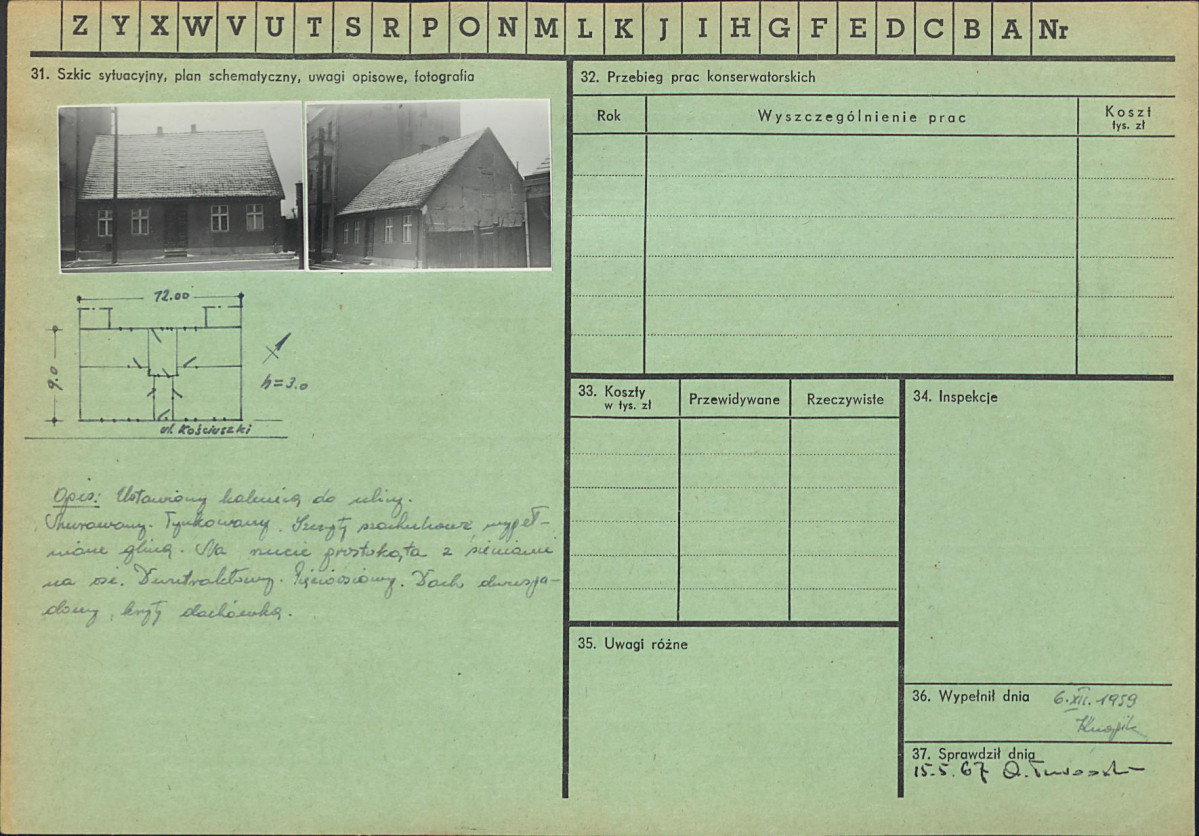 Z Y X W V U T S R P O N M L K J I H G F E D C B A Nr
31. Szkic sytuacyjny, plan schematyczny, uwagi opisowe, fotografia
12.00
9.0
h=3.0
ul. Kościuszki
Opis: Ustawiony kalenicą do ulicy.
Murowany. Tynkowany. Szczyty szachulcowe wypeł-
nione gliną. Na rzucie prostokąta z sieniami
na osi. Dwutraktowy. Pięcioosiowy. Dach dwuspa-
dowy, kryty dachówką.
32. Przebieg prac konserwatorskich
Rok
Wyszczególnienie prac
Koszt
tys. zł
33. Koszty
w tys. zł
Przewidywane
Rzeczywiste
34. Inspekcje
35. Uwagi różne
36. Wypełnił dnia 6.XII.1959
37. Sprawdził dnia
15.5.67